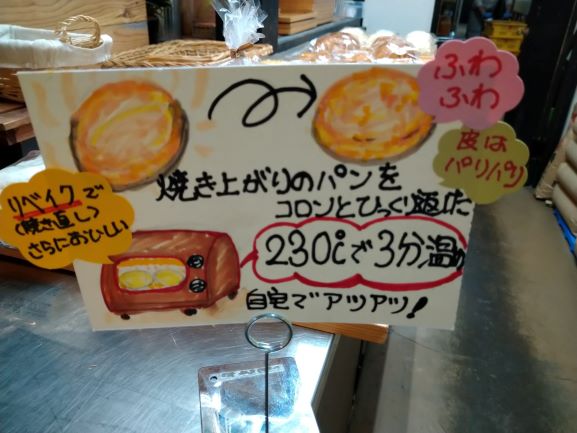 ふわ
ふわ
皮は
パリパリ
リベイクで
(焼き直し)
さらにおいしい
焼き上がりのパンを
コロンとひっくり返した
230℃で3分温め
自宅でアツアツ!